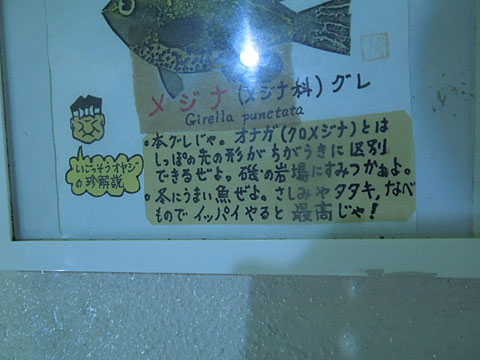 メジナ(メジナ科)グレ
Girella punctata
・本グレじゃ。オナガ(クロメジナ)とは
しっぽの先の形がちがうきに区別
できるぜよ。磯の岩場にすみつかぁよ。
・冬にうまい魚ぜよ。さしみやタタキ,なべ
ものでイッパイやると最高じゃ!
いごっそうオヤジ
の珍解説